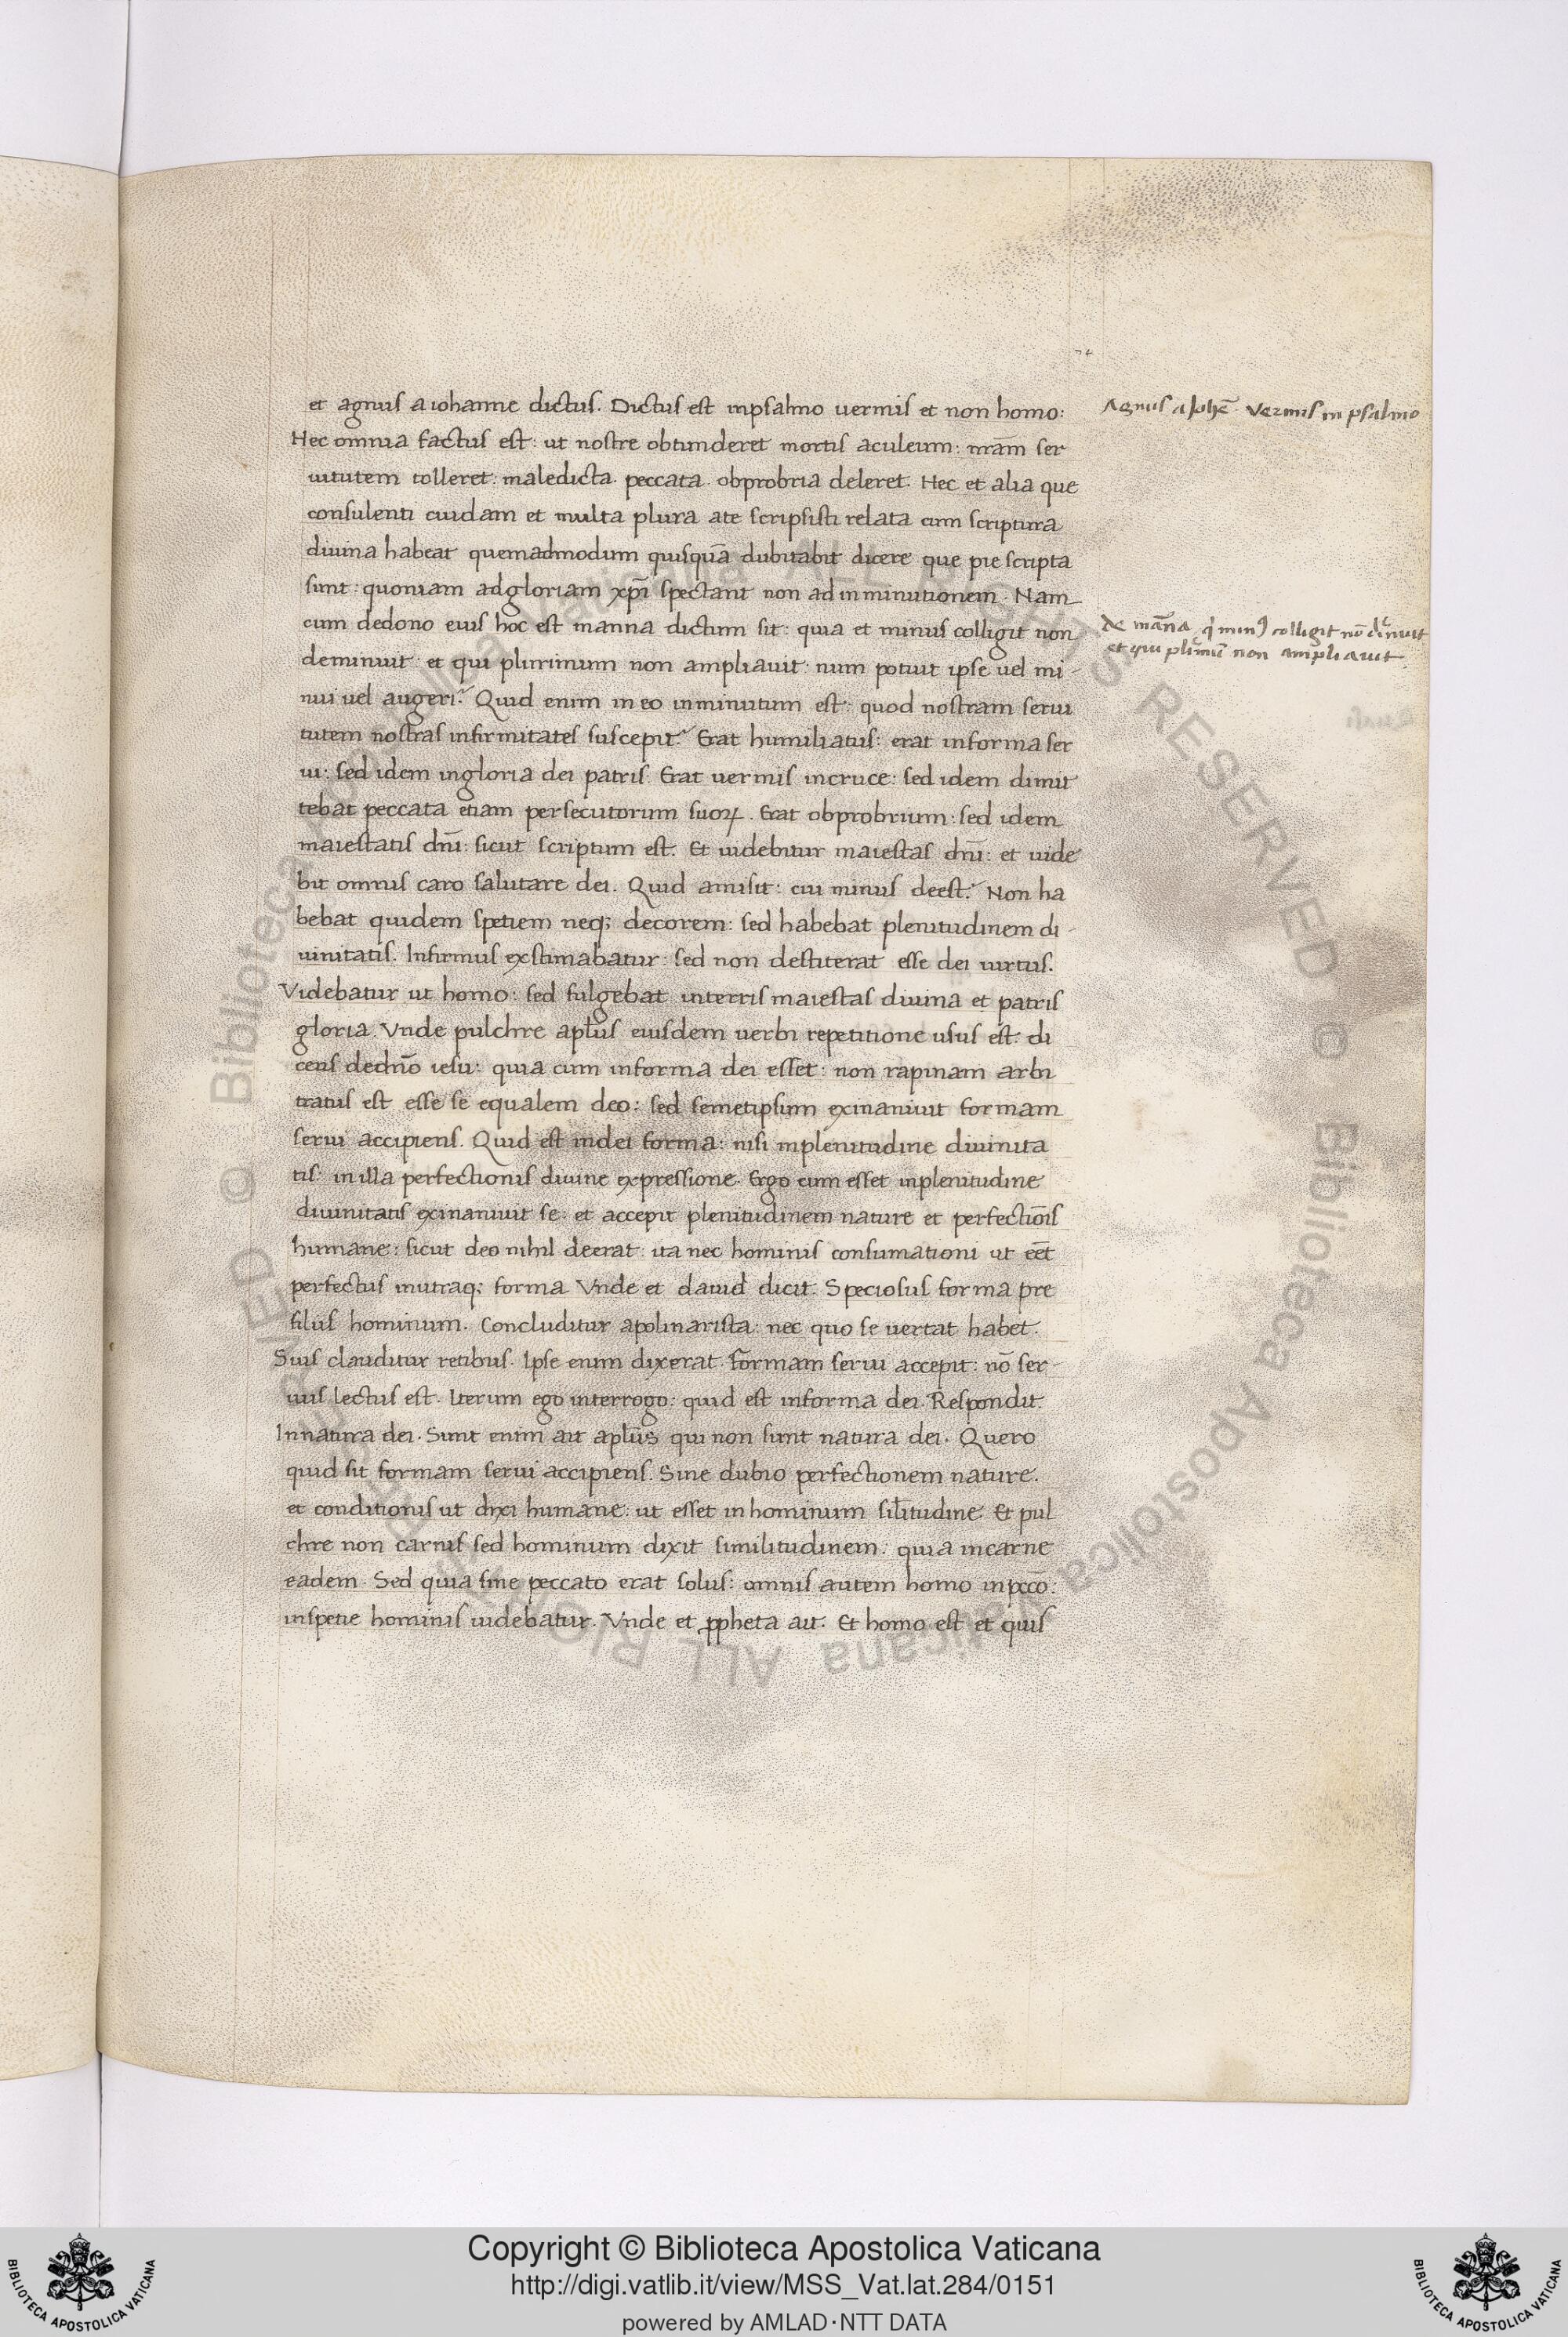 74
et agnus a iohanne dictus. Dictus est inpsalmo uermis et non homo:
Agnus a Joh̄e. Vermis in psalmo
Hec omnia factus est: ut nostre obtunderet mortis aculeum: nr̄am ser
uitutem tolleret: maledicta. peccata. obprobria deleret. Hec et alia que
consulenti cuidam et multa plura ate scripsisti relata cum scriptura
diuina habeat quemadmodum quisquā dubitabit dicere que pie scripta
sunt: quoniam adgloriam xp̄i spectant non ad inminutionem. Nam
cum dedono eius hoc est manna dictum sit: quia et minus colligit non
De māna qͥ minꝰ colligit nō
deminuit: et qui plurimum non ampliauit: num potuit ipse uel mi-
et qui plimū non ampliauit
nui uel augeri? Quid enim in eo inminutum est: quod nostram serui
tutem nostras infirmitates suscepit? Erat humiliatus: erat informa ser
ui: sed idem ingloria dei patris. Erat uermis incruce: sed idem dimit
tebat peccata etiam persecutorum suoꝝ. Erat obprobrium: sed idem
maiestatis dn̄i: sicut scriptum est. Et uidebitur maiestas dn̄i: et uide
bit omnis caro salutare dei. Quid amisit: cui minus deest? Non ha
bebat quidem spetiem neq; decorem: sed habebat plenitudinem di-
uinitatis. Infirmus exstimabatur: sed non destiterat esse dei uirtus.
Videbatur ut homo: sed fulgebat interris maiestas diuina et patris
gloria. Vnde pulchre apl̄us eiusdem uerbi repetitione usus est. di
cens dedn̄o iesu: quia cum informa dei esset: non rapinam arbi
tratus est esse se equalem deo: sed semetipsum exinaniuit formam
serui accipiens. Quid est indei forma: nisi inplenitudine diuinita
tis: in illa perfectionis diuine expressione. Ergo cum esset inplenitudine
diuinitatis exinaniuit se: et accepit plenitudinem nature et perfectiōis
humane: sicut deo nihil deerat: ita nec hominis consumationi ut eēt
perfectus inutraq; forma. Vnde et dauid dicit. Speciosus forma pre
filiis hominum. Concluditur apolinarista: nec quo se uertat habet.
Suis clauditur retibus. Ipse enim dixerat. formam serui accepit: nō ser-
uus lectus est. Iterum ego interrogo: quid est informa dei. Respondit.
Innatura dei. Sunt enim ait apl̄us qui non sunt natura dei. Quero
quid sit formam serui accipiens. Sine dubio perfectionem nature.
et conditionis ut dixi humane: ut esset in hominum sil̄itudine. Et pul
chre non carnis sed hominum dixit similitudinem: quia incarne
eadem. Sed quia sine peccato erat solus: omnis autem homo inpccō:
inspetie hominis uidebatur. Vnde et ꝓpheta ait. Et homo est et quis
Copyright © Biblioteca Apostolica Vaticana
http://digi.vatlib.it/view/MSS_Vat.lat.284/0151
powered by AMLAD·NTT DATA
BIBLIOTECA APOSTOLICA VATICANA
BIBLIOTECA APOSTOLICA VATICANA